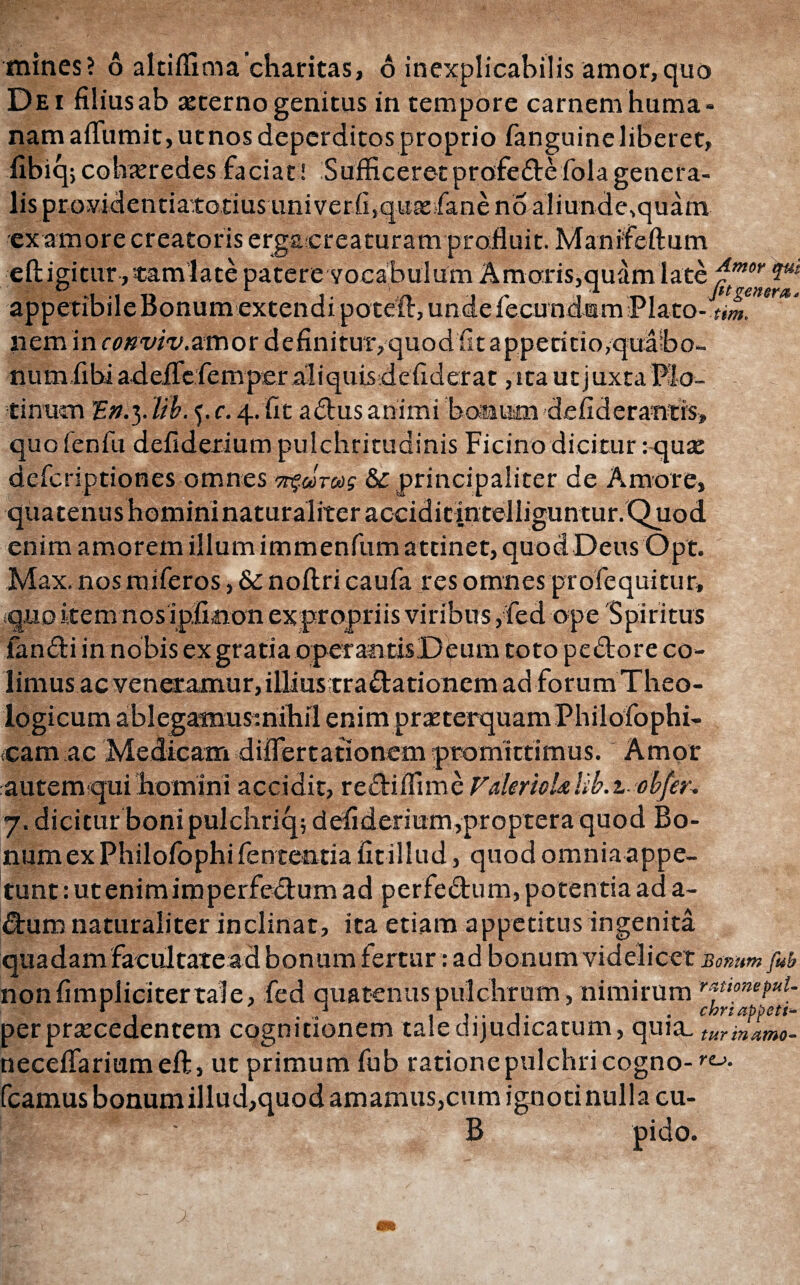 mines? ô altiſſima charitas, ô inexplicabilis amor, quo
DEI filius ab æterno genitus in tempore carnem huma-
nam aſſumit, ut nos deperditos proprio ſanguine liberet,
ſibiq; cohæredes faciat! Sufficeret profectè ſola genera-
lis providentia totius univerſi, quæ ſanè nō aliunde, quàm
ex amore creatoris erga creaturam profluit. Manifeſtum
eſt igitur, tam latè patere vocabulum Amoris, quàm latè
Amor qui
ſit genera-
tim.
appetibile Bonum extendi poteſt, unde ſecundùm Plato-
nem in conviv. amor definitur, quod ſit appetitio, quâ bo-
num ſibi adeſſe ſemper aliquis deſiderat, ita ut juxta Plo-
tinum En. 3. lib. 5. c. 4. ſit actus animi bonum deſiderantis,
quo ſenſu deſiderium pulchritudinis Ficino dicitur: quæ
deſcriptiones omnes πρώτως & principaliter de Amore,
quatenus homini naturaliter accidit intelliguntur. Quod
enim amorem illum immenſum attinet, quod Deus Opt.
Max. nos miſeros, & noſtri cauſa res omnes proſequitur,
quo item nos ipſi non ex propriis viribus, ſed ope Spiritus
ſancti in nobis ex gratia operantis Deum toto pectore co-
limus ac veneramur, illius tractationem ad forum Theo-
logicum ablegamus: nihil enim præterquam Philoſophi-
cam ac Medicam diſſertationem promittimus. Amor
autem qui homini accidit, rectiſſimè Valeriola lib. 2. obſer.
7. dicitur boni pulchriq; deſiderium, propterea quod Bo-
num ex Philoſophi ſententia ſit illud, quod omnia appe-
tunt: ut enim imperfectum ad perfectum, potentia ad a-
ctum naturaliter inclinat, ita etiam appetitus ingenitâ
quadam facultate ad bonum fertur: ad bonum videlicet
Bonum ſub
ratione pul-
chri appeti-
tur in amo-
re.
non ſimpliciter tale, ſed quatenus pulchrum, nimirum
per præcedentem cognitionem tale dijudicatum, quia
neceſſarium eſt, ut primum ſub ratione pulchri cogno-
ſcamus bonum illud, quod amamus, cum ignoti nulla cu-
B pido.